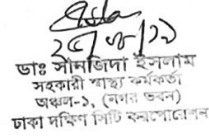 ২৫/৩/১৯
ডাঃ সানজিদা ইসলাম
সহকারী স্বাস্থ্য কর্মকর্তা
অঞ্চল-১, (নগর ভবন)
ঢাকা দক্ষিণ সিটি কর্পোরেশন